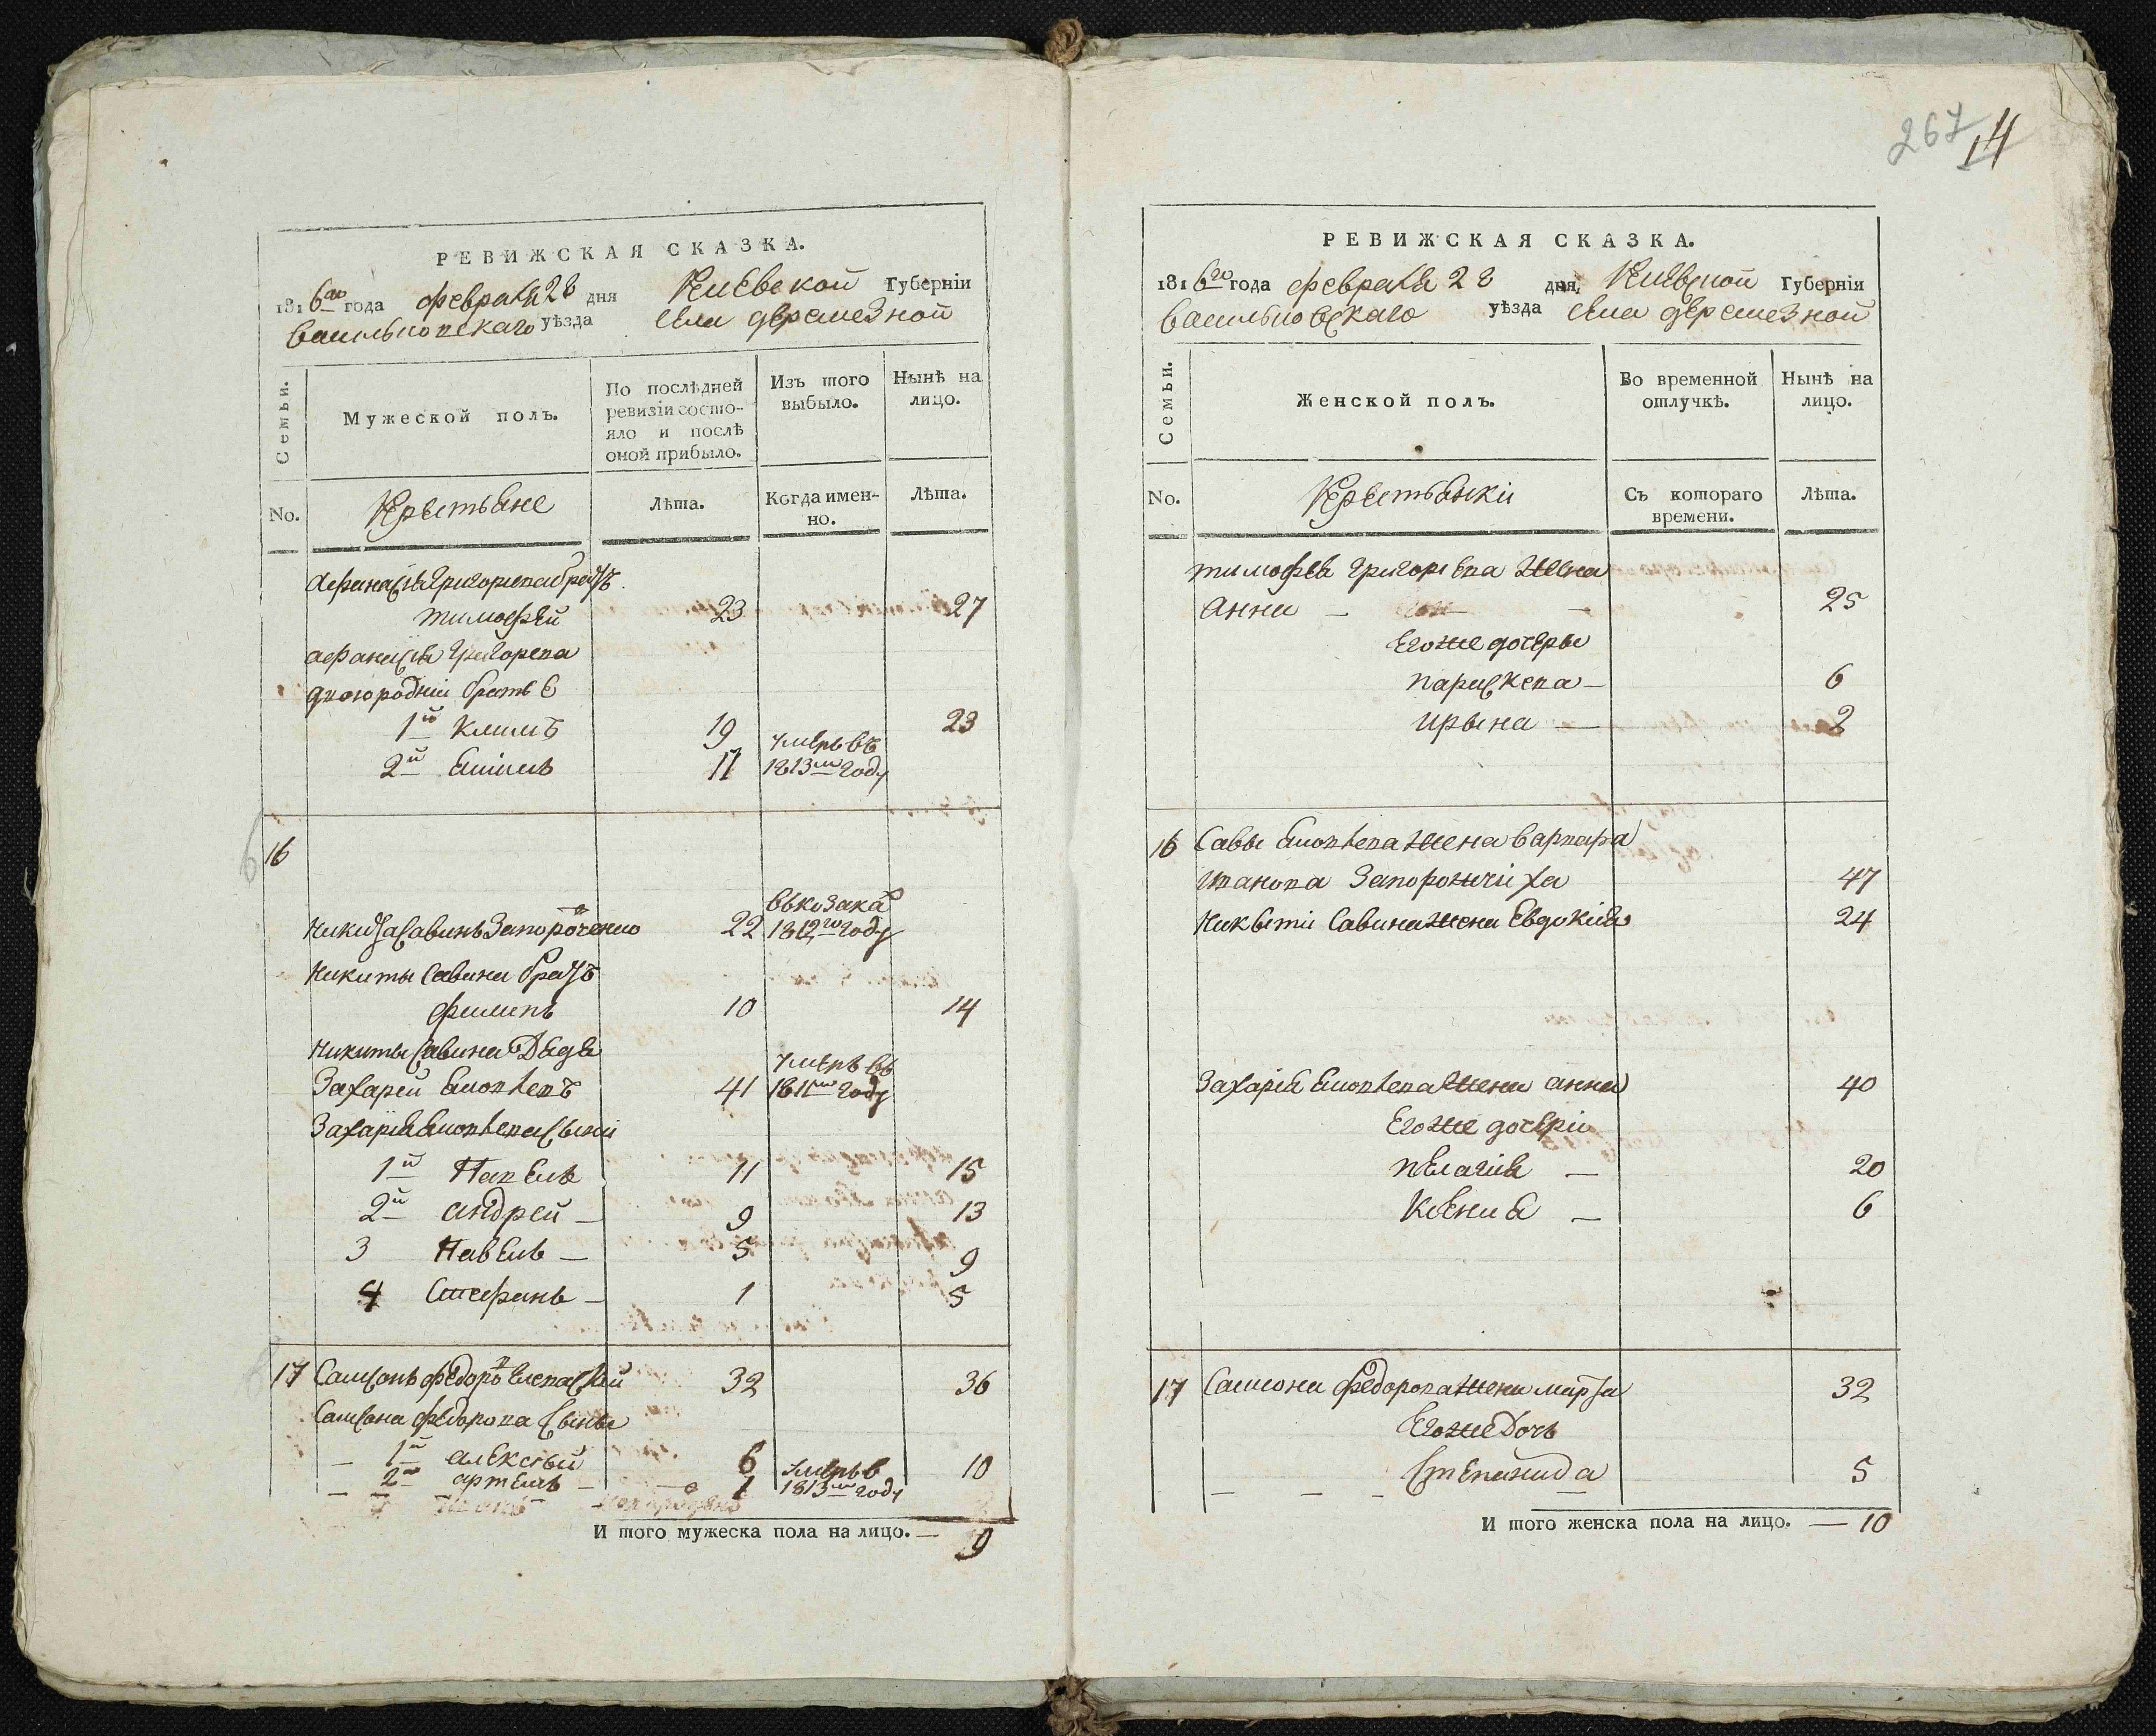 267 14
РЕВИЖСКАЯ СКАЗКА.
1816го года февраля 28 дня Киевской Губерніи
васильковскаго уѣзда села деремезной
Семьи.
Мужеской полъ.
По послѣдней ревизіи состояло и послѣ оной прибыло.
Изъ того выбыло.
Нынѣ на лицо.
No.
Крестьяне
Лѣта.
Когда именно.
Лѣта.
Афанасія Григорьева братъ
тимофей 23 27
афанасія Григорева
двоюродніи братья
1й климъ 19 23
2й 11 умеръ въ 1813м году
16
Никита Савинъ Запороженко 22 въ козака 1812го году
Никиты Савина братъ
филипъ 10 14
Никиты Савина Дядя
Захарей 41 умеръ въ 1811м году
Захарія сыни
1й Павелъ 11 15
2й андрей — 9 13
3 Павелъ — 5 9
4 Стефанъ — 1 5
17 Самсонъ федоровъ 32 36
Самсона федорова сыны
— 1й алексей 6 10
— 2й артемъ — 1 умеръ в 1813м году
И того мужеска пола на лицо. — 9
РЕВИЖСКАЯ СКАЗКА.
1816го года февраля 28 дня, Киевской Губернія
васильковскаго уѣзда села деремезной
Семьи.
Женской полъ.
Во временной отлучкѣ.
Нынѣ на лицо.
No.
Крестьянкі
Съ котораго времени.
Лѣта.
тимофея григорьева жена
анна — — 25
Егоже дочеры
параскева — 6
ирына — 2
16 Савы жена варвара
иванова Запорожчиха 47
Никыти Савина жена Евдокия 24
Захарія жена анна 40
Егоже дочери
пелагия — 20
Ксения — 6
17 Самсона федорова жена марта 32
Егоже Дочь
— — — степанида 5
И того женска пола на лицо. — 10